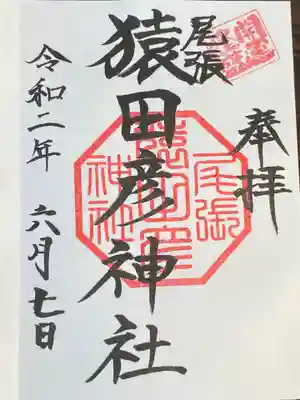 奉拝
尾張
猿田彦神社
令和二年 六月七日
尾張
猿田彦
神社
開運